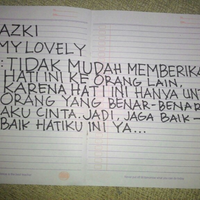 AZKI
MY LOVELY
: TIDAK MUDAH MEMBERIKA
HATI INI KE ORANG LAIN,
KARENA HATI INI HANYA UNT
ORANG YANG BENAR-BENAR
AKU CINTA. JADI, JAGA BAIK-
BAIK HATIKU INI YA...